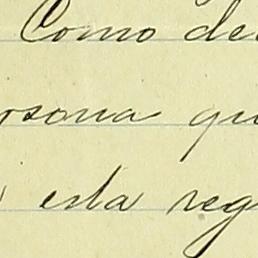 Como de
osona qu
esta reg